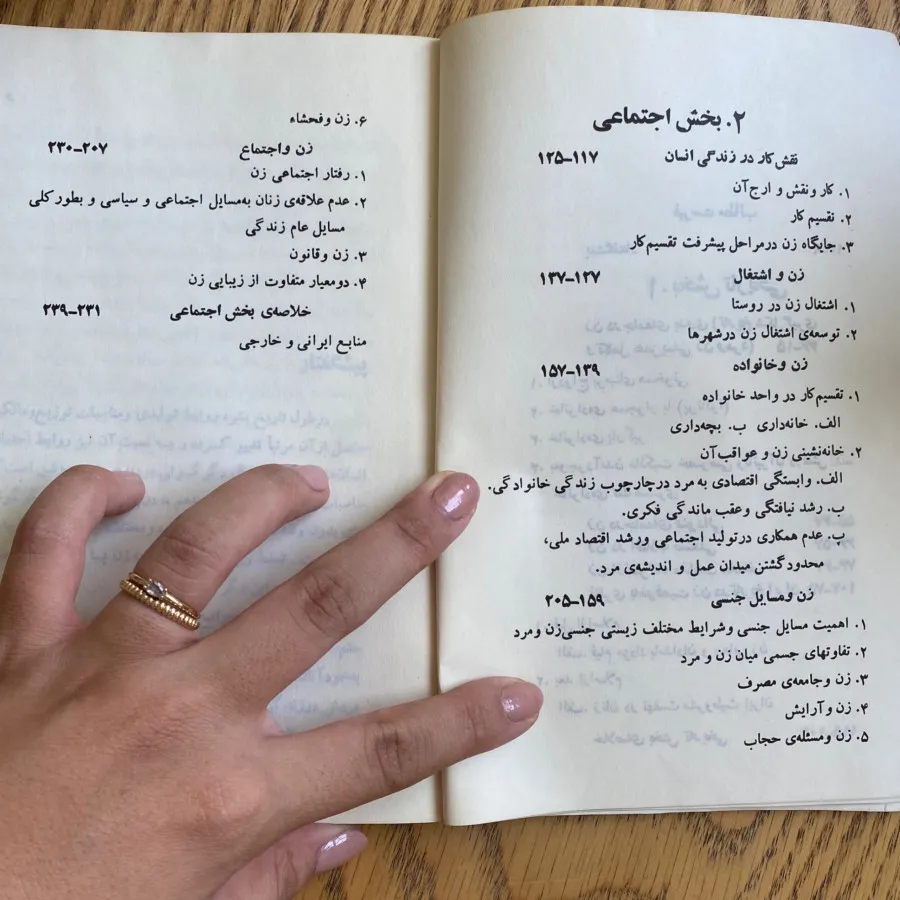 ۲. بخش اجتماعی
نقش کار در زندگی انسان ۱۱۷-۱۲۵
۱. کار و نقش و ارج آن
۲. تقسیم کار
۳. جایگاه زن در مراحل پیشرفت تقسیم کار
زن و اشتغال ۱۲۷-۱۳۷
۱. اشتغال زن در روستا
۲. توسعه‌ی اشتغال زن در شهرها
زن و خانواده ۱۳۹-۱۵۷
۱. تقسیم کار در واحد خانواده
الف. خانه‌داری ب. بچه‌داری
۲. خانه‌نشینی زن و عواقب آن
الف. وابستگی اقتصادی به مرد در چارچوب زندگی خانوادگی.
ب. رشد نیافتگی و عقب ماندگی فکری.
پ. عدم همکاری در تولید اجتماعی و رشد اقتصاد ملی،
محدود گشتن میدان عمل و اندیشه‌ی مرد.
زن و مسایل جنسی ۱۵۹-۲۰۵
۱. اهمیت مسایل جنسی و شرایط مختلف زیستی جنسی زن و مرد
۲. تفاوتهای جسمی میان زن و مرد
۳. زن و جامعه‌ی مصرف
۴. زن و آرایش
۵. زن و مسئله‌ی حجاب
۶. زن و فحشاء
زن و اجتماع ۲۰۷-۲۳۰
۱. رفتار اجتماعی زن
۲. عدم علاقه‌ی زنان به مسایل اجتماعی و سیاسی و بطور کلی
مسایل عام زندگی
۳. زن و قانون
۴. دو معیار متفاوت از زیبایی زن
خلاصه‌ی بخش اجتماعی ۲۳۱-۲۳۹
منابع ایرانی و خارجی